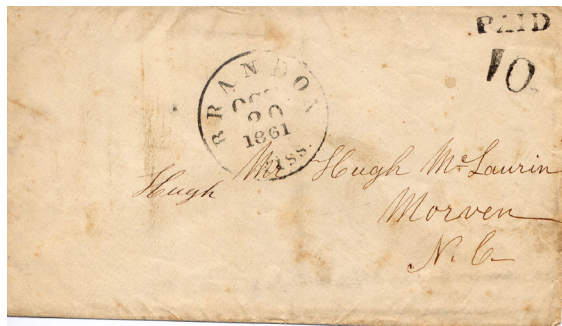 PAID
10
BRANDON
OCT
20
1861
Miss.
Mr Hugh McLaurin
Hugh
Morven
N. C.